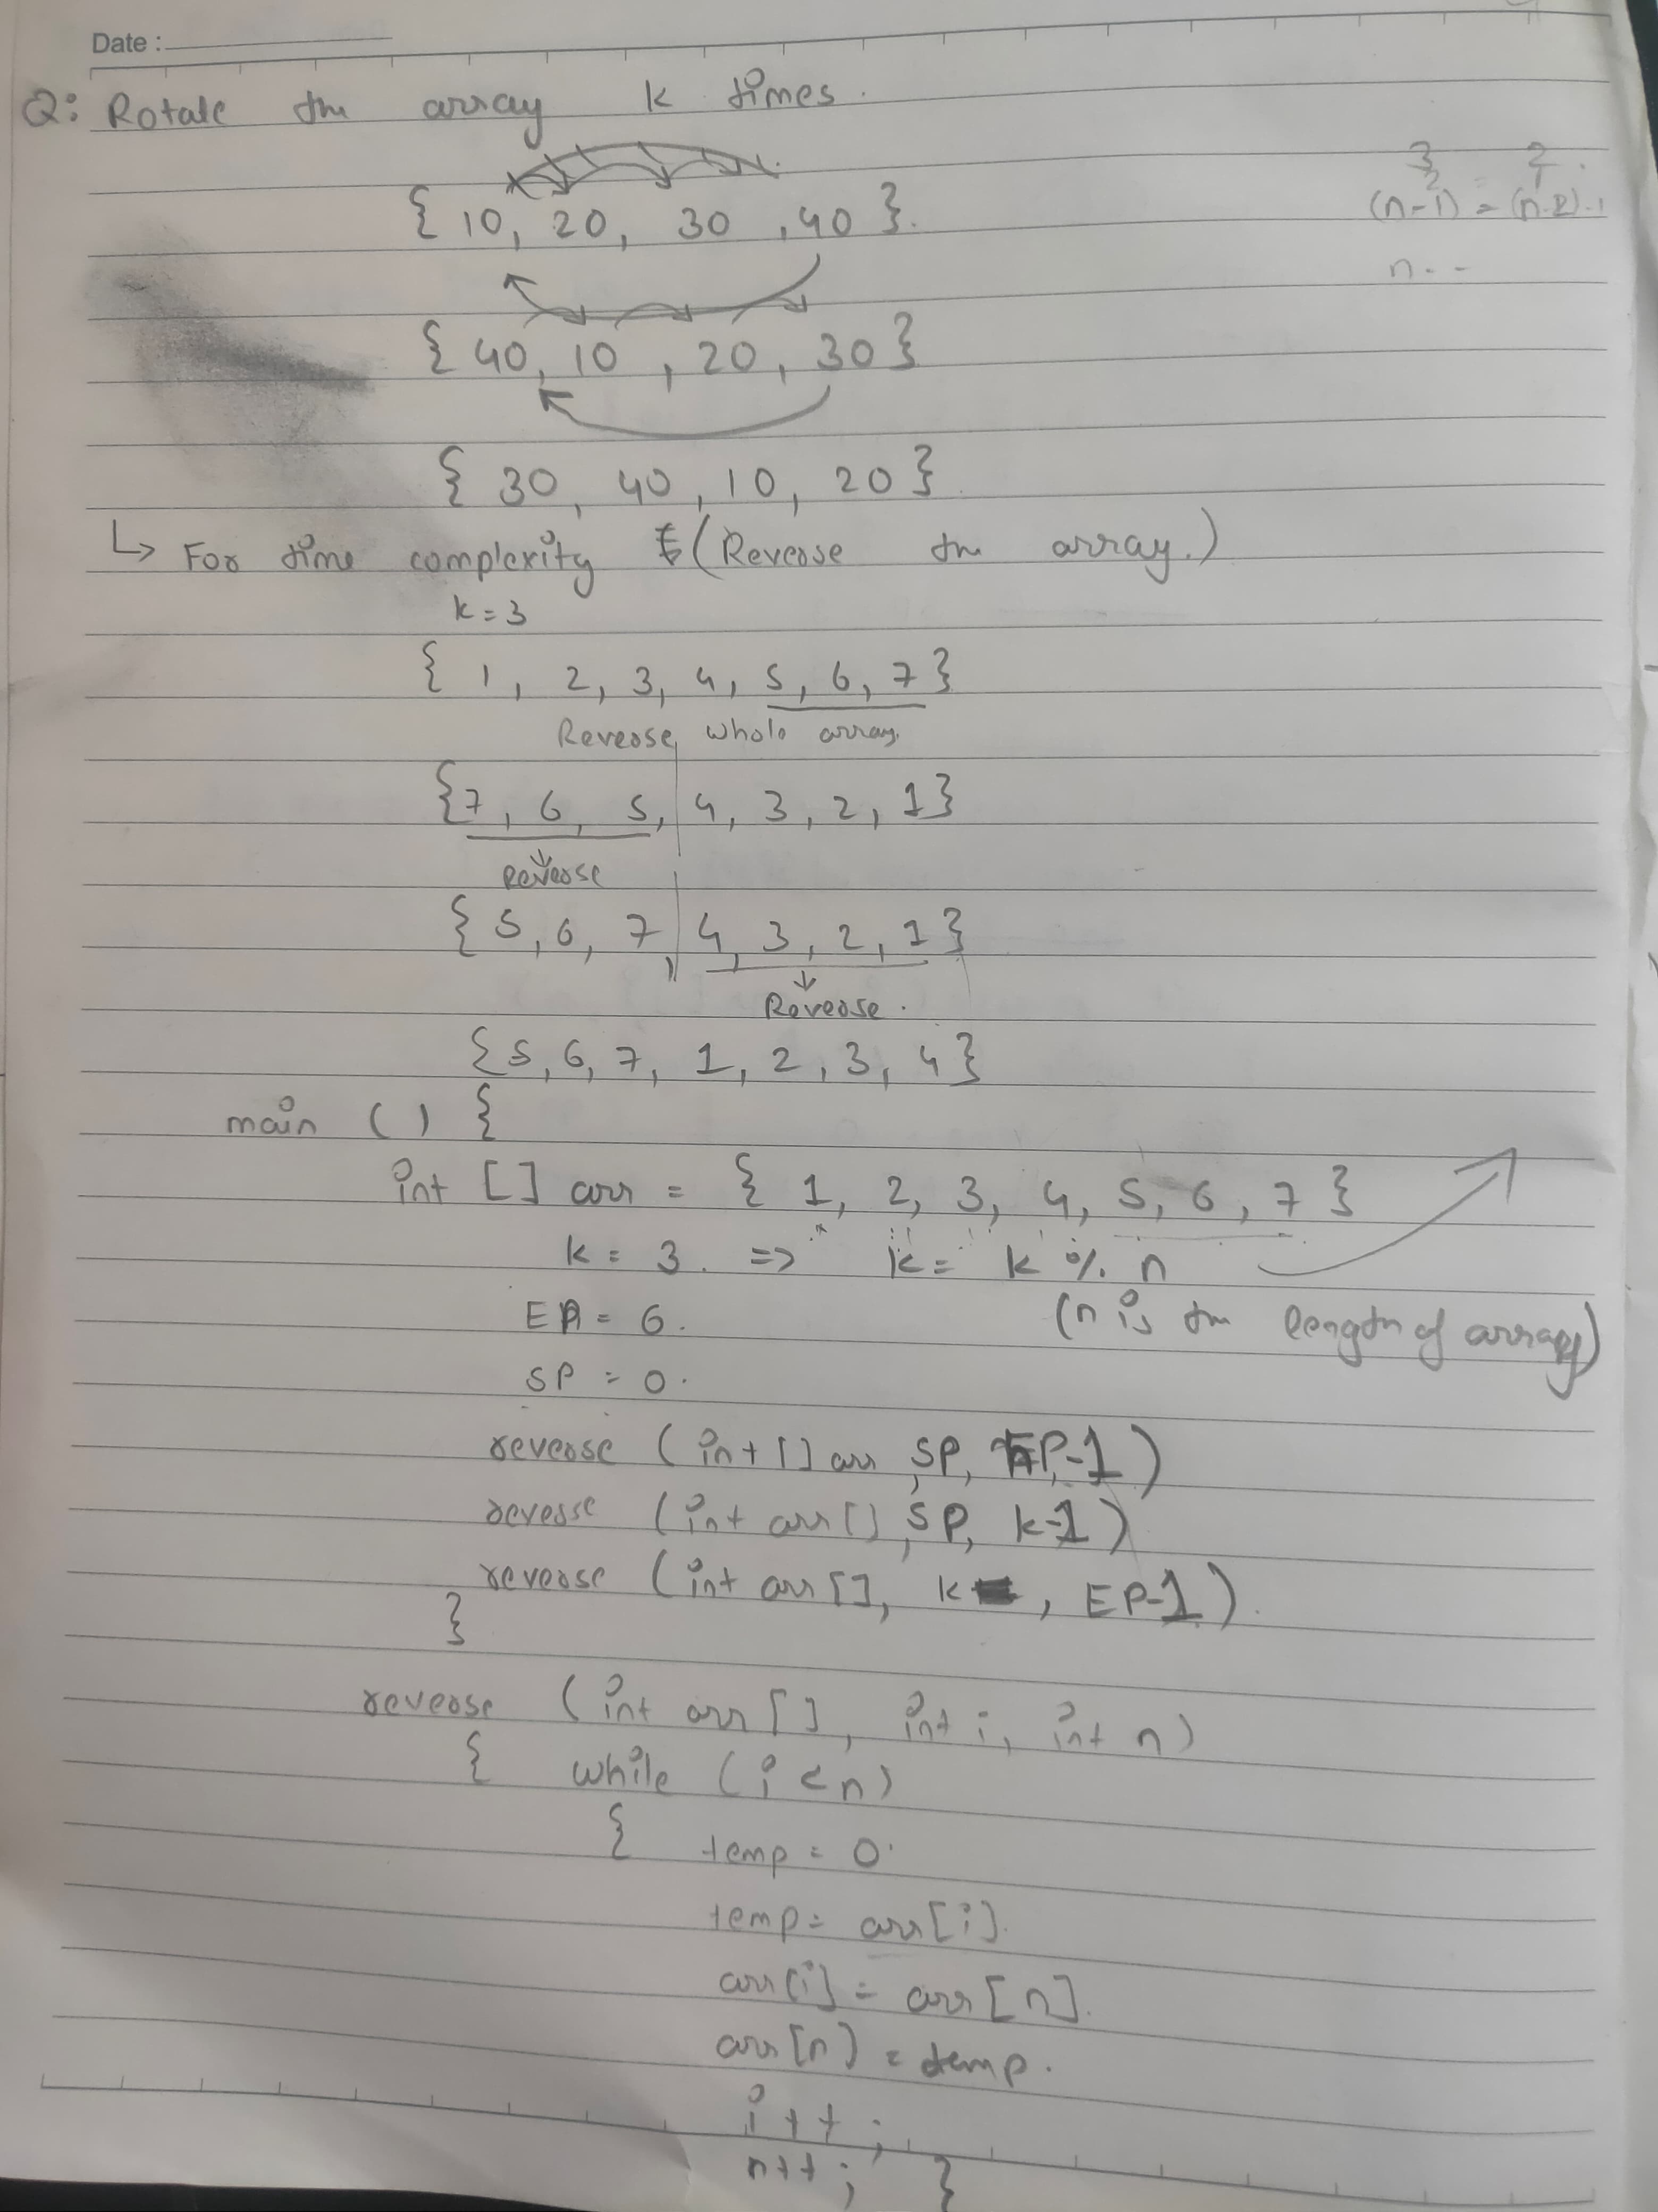 Date :
Q: Rotate the array k times.
{ 10, 20, 30 , 40 }.
3 2
2 1
(n-1) = (n-2)-1
n--
{ 40, 10 , 20, 30 }
{ 30, 40, 10, 20 }
↳ For time complexity (Reverse the array.)
k = 3
{ 1, 2, 3, 4, 5, 6, 7 }
Reverse whole array.
{ 7, 6, 5, 4, 3, 2, 1 }
Reverse
{ 5, 6, 7, 4, 3, 2, 1 }
Reverse.
{ 5, 6, 7, 1, 2, 3, 4 }
main () {
int [] arr = { 1, 2, 3, 4, 5, 6, 7 }
k = 3. => k = k % n
EP = 6. (n is the length of array)
SP = 0.
reverse (int [] arr, SP, EP-1)
reverse (int arr [], SP, k-1)
reverse (int arr [], k , EP-1).
}
reverse (int arr [], int i, int n)
{ while (i < n)
{ temp = 0.
temp = arr [i].
arr [i] = arr [n].
arr [n] = temp.
i++ ;
n++ ; }